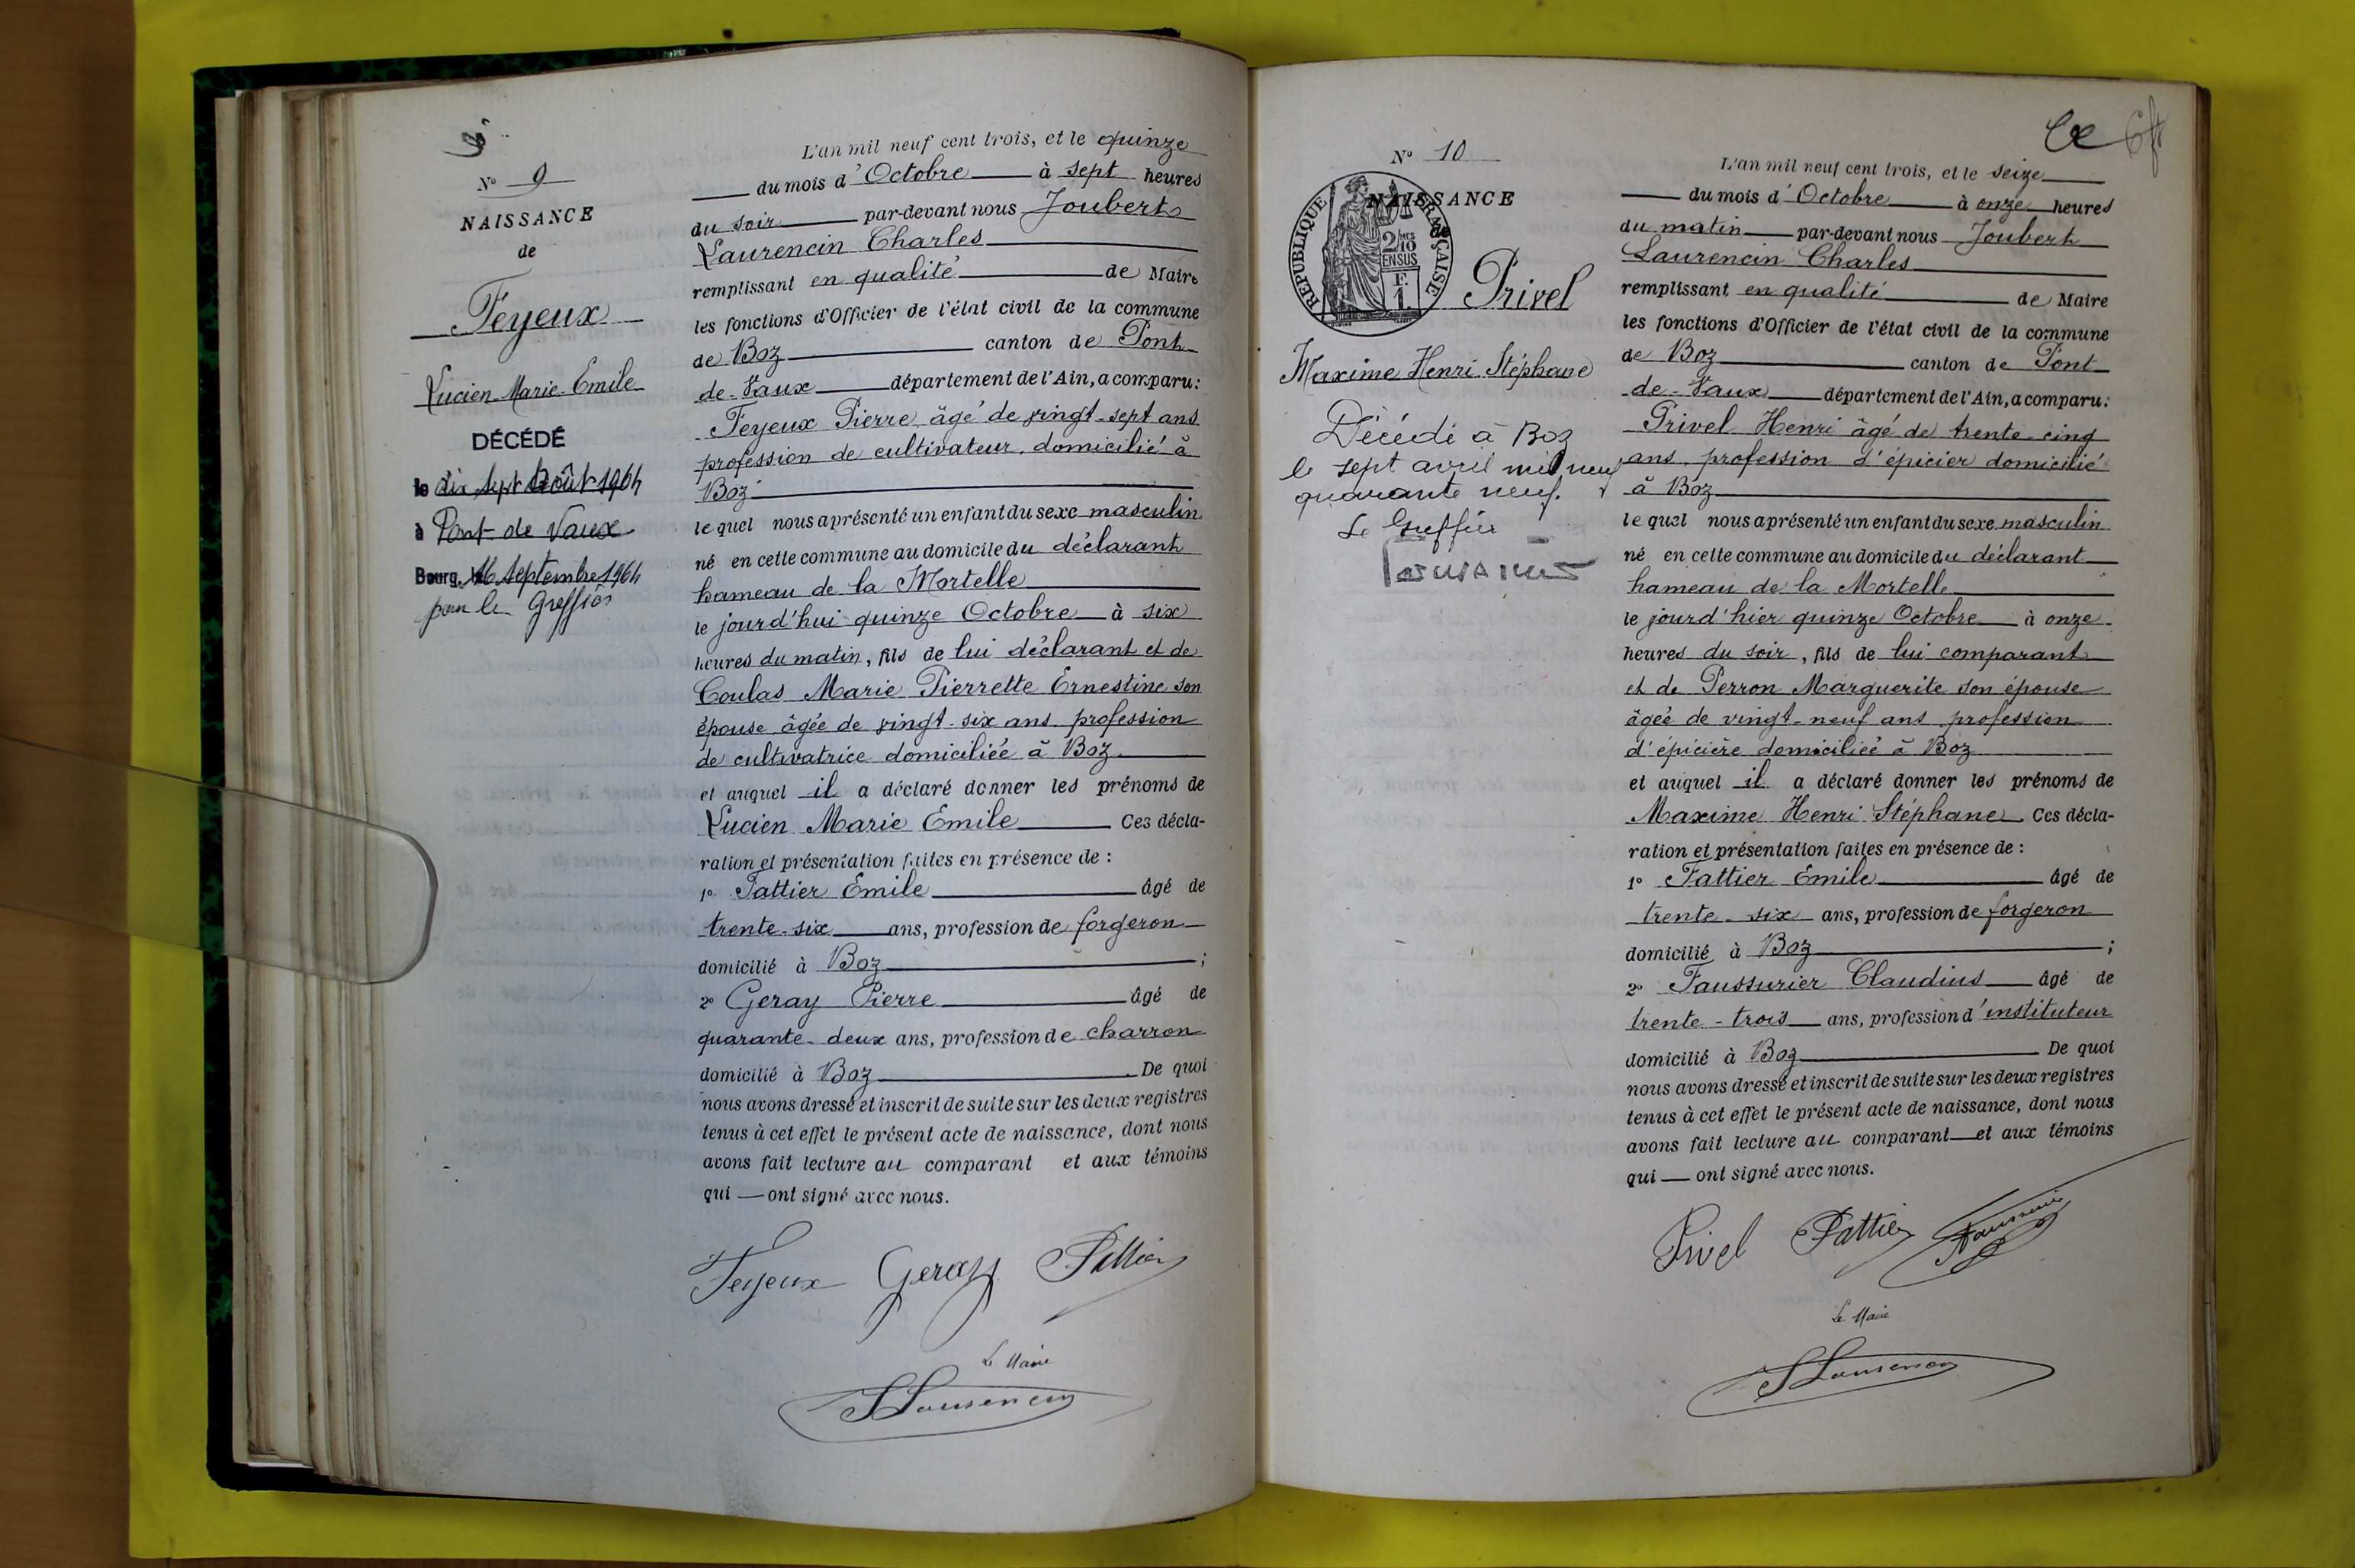 N° 9
NAISSANCE
de
Feyeux
Lucien Marie Emile
DÉCÉDÉ
le dix sept Août 1964
à Pont-de Vaux
Bourg, le 16 Septembre 1964
pour le Greffier
L'an mil neuf cent trois, et le quinze
du mois d'Octobre à sept heures
du soir par-devant nous Joubert
Laurencin Charles
remplissant en qualité de Maire
les fonctions d'Officier de l'état civil de la commune
de Boz canton de Pont
de-Vaux département de l'Ain, a comparu:
Feyeux Pierre âgé de vingt-sept ans
profession de cultivateur, domicilié à
Boz
lequel nous a présenté un enfant du sexe masculin
né en cette commune au domicile du déclarant
hameau de la Mortelle
le jourd'hui quinze Octobre à six
heures du matin, fils de lui déclarant et de
Coulas Marie Pierrette Ernestine son
épouse âgée de vingt-six ans profession
de cultivatrice domiciliée à Boz
et auquel il a déclaré donner les prénoms de
Lucien Marie Emile Ces décla-
ration et présentation faites en présence de :
1° Pattier Emile âgé de
trente-six ans, profession de forgeron
domicilié à Boz ;
2° Geray Pierre âgé de
quarante-deux ans, profession de charron
domicilié à Boz. De quoi
nous avons dressé et inscrit de suite sur les deux registres
tenus à cet effet le présent acte de naissance, dont nous
avons fait lecture au comparant et aux témoins
qui — ont signé avec nous.
Feyeux Geray Pattier
Le Maire
JLaurencin
N° 10
NAISSANCE
RÉPUBLIQUE FRANÇAISE
2/10
EN SUS
F.
1
Privel
Maxime Henri Stéphane
Décédé à Boz
le sept avril mil neuf
quarante neuf.
Le Greffier
L'an mil neuf cent trois, et le seize
du mois d'Octobre à onze heures
du matin par-devant nous Joubert
Laurencin Charles
remplissant en qualité de Maire
les fonctions d'Officier de l'état civil de la commune
de Boz canton de Pont
de-Vaux département de l'Ain, a comparu:
Privel Henri âgé de trente-cinq
ans, profession d'épicier domicilié
à Boz
lequel nous a présenté un enfant du sexe masculin
né en cette commune au domicile du déclarant
hameau de la Mortelle
le jourd'hier quinze Octobre à onze
heures du soir, fils de lui comparant
et de Perron Marguerite son épouse
âgée de vingt-neuf ans profession
d'épicière domiciliée à Boz
et auquel il a déclaré donner les prénoms de
Maxime Henri Stéphane. Ces décla-
ration et présentation faites en présence de :
1° Pattier Emile âgé de
trente-six ans, profession de forgeron
domicilié à Boz ;
2° Faussurier Claudius âgé de
trente-trois ans, profession d'instituteur
domicilié à Boz. De quoi
nous avons dressé et inscrit de suite sur les deux registres
tenus à cet effet le présent acte de naissance, dont nous
avons fait lecture au comparant et aux témoins
qui — ont signé avec nous.
Privel Pattier Faussurier
Le Maire
JLaurencin